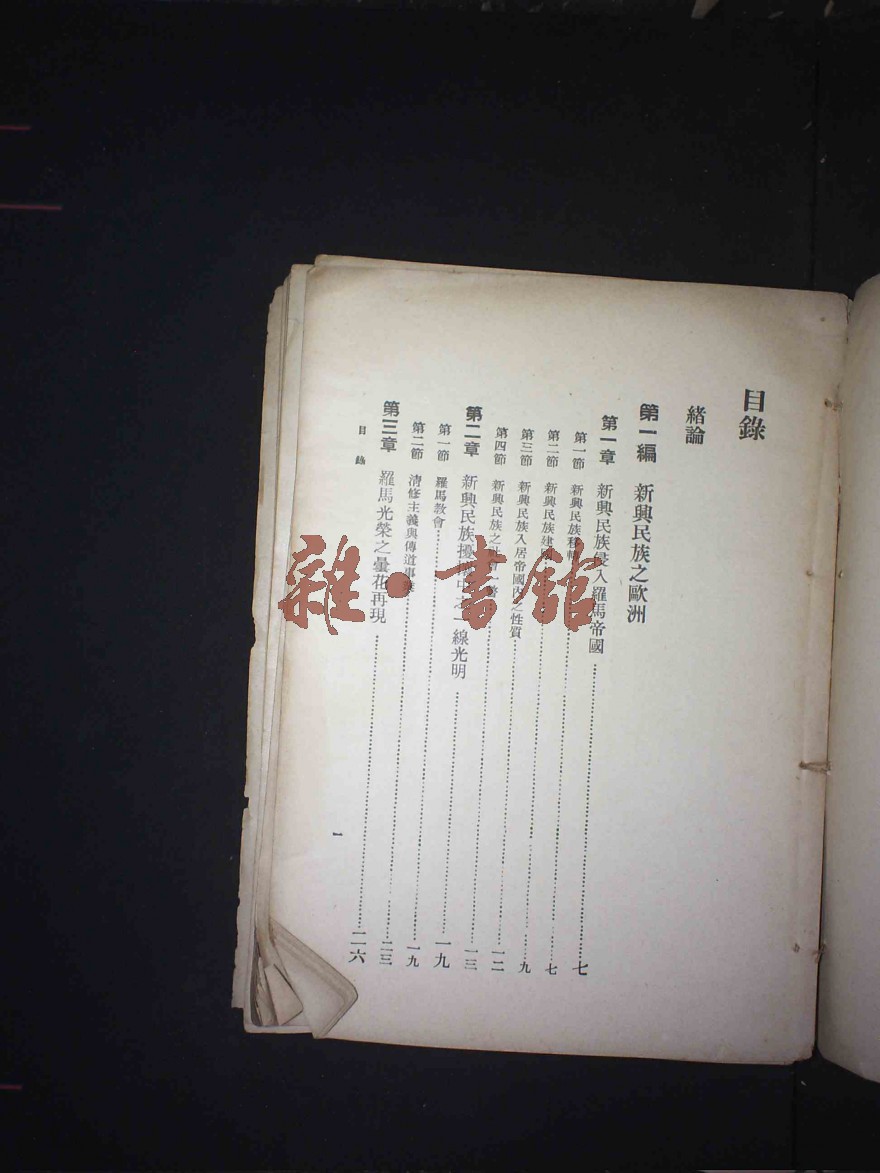 目錄
緒論
第一編 新興民族之歐洲
第一章 新興民族侵入羅馬帝國……七
第一節 新興民族移……七
第二節 新興民族建……九
第三節 新興民族入居帝國內之性質……一二
第四節 新興民族之……一三
第二章 新興民族擾中之一線光明……一九
第一節 羅馬教會……一九
第二節 清修主義與傳道事業……二三
第三章 羅馬光榮之曇花再現……二六
目錄
一
雜·書館